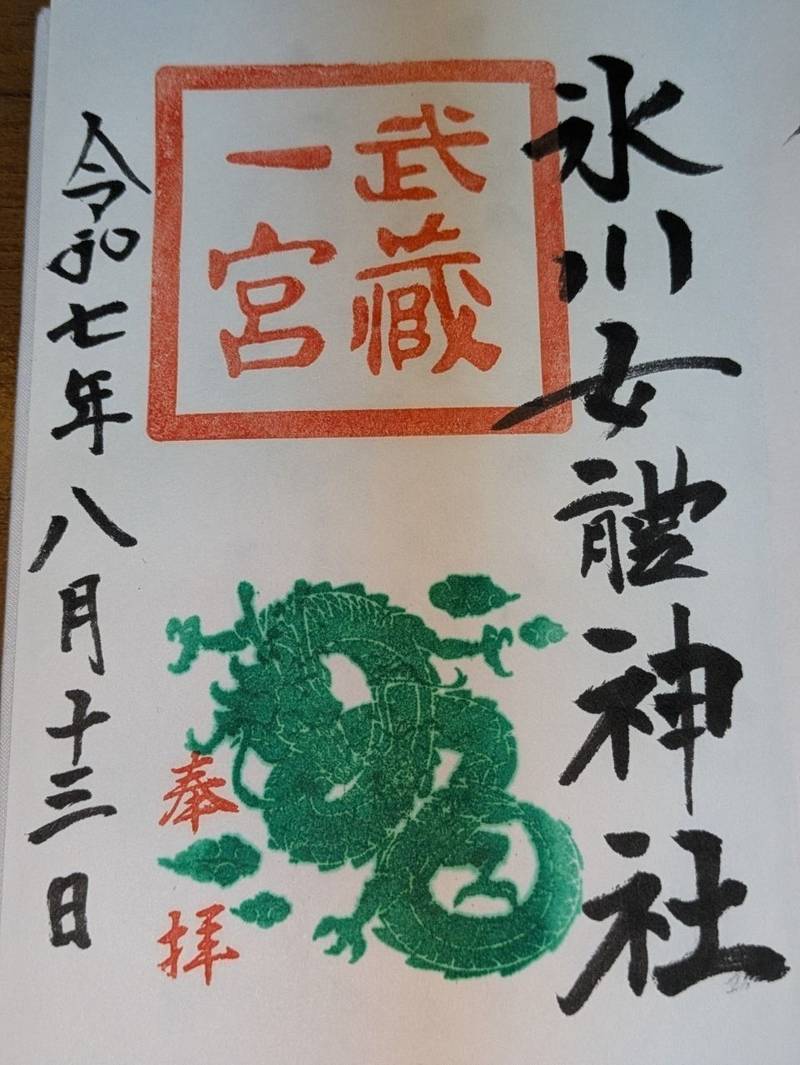 氷川女體神社
武蔵
一宮
奉拝
令和七年八月十三日